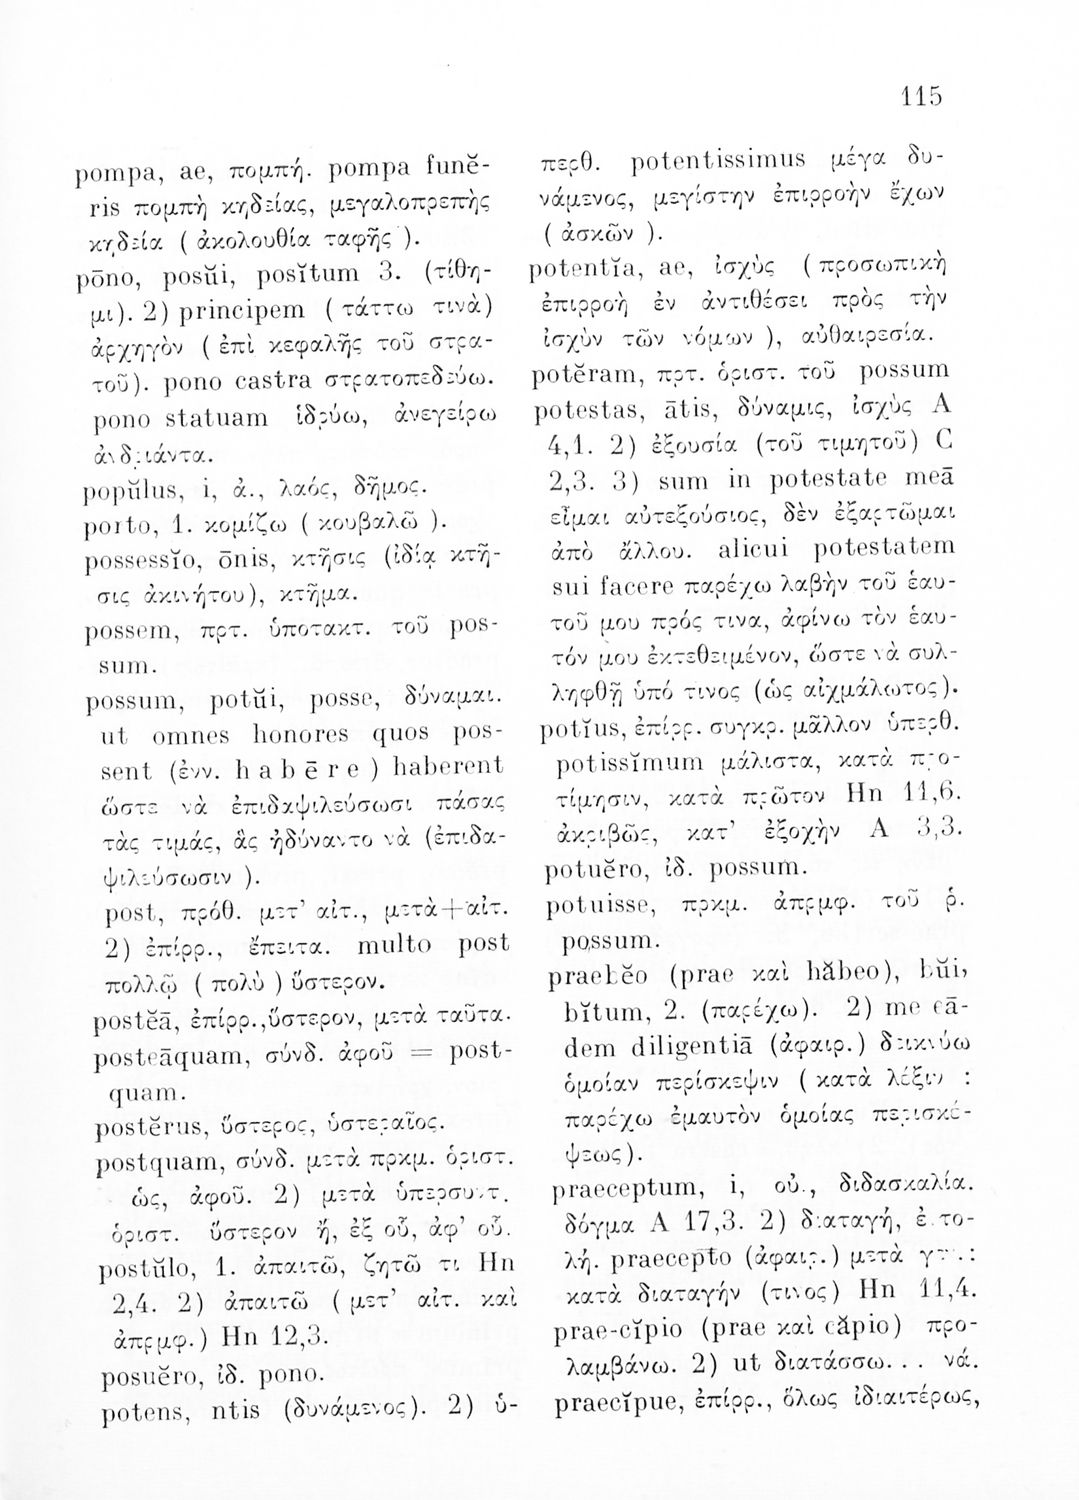 115
pompa, ae, πομπή. pompa funĕ-
ris πομπὴ κηδείας, μεγαλοπρεπὴς
κηδεία ( ἀκολουθία ταφῆς ).
pōno, posŭi, posĭtum 3. (τίθη-
μι). 2) principem ( τάττω τινὰ)
ἀρχηγὸν ( ἐπὶ κεφαλῆς τοῦ στρα-
τοῦ). pono castra στρατοπεδεύω.
pono statuam ἱδρύω, ἀνεγείρω
ἀνδριάντα.
popŭlus, i, ἀ., λαός, δῆμος.
porto, 1. κομίζω ( κουβαλῶ ).
possessĭo, ōnis, κτῆσις (ἰδίᾳ κτῆ-
σις ἀκινήτου), κτῆμα.
possem, πρτ. ὑποτακτ. τοῦ pos-
sum.
possum, potŭi, posse, δύναμαι.
ut omnes honores quos pos-
sent (ἐνν. habēre) haberent
ὥστε νὰ ἐπιδαψιλεύσωσι πάσας
τὰς τιμάς, ἃς ἠδύναντο νὰ (ἐπιδα-
ψιλεύσωσιν ).
post, πρόθ. μετ' αἰτ., μετὰ+αἰτ.
2) ἐπίρρ., ἔπειτα. multo post
πολλῷ ( πολὺ ) ὕστερον.
postĕā, ἐπίρρ.,ὕστερον, μετὰ ταῦτα.
posteāquam, σύνδ. ἀφοῦ = post-
quam.
postĕrus, ὕστερος, ὑστεραῖος.
postquam, σύνδ. μετὰ πρκμ. ὁριστ.
ὡς, ἀφοῦ. 2) μετὰ ὑπερσυντ.
ὁριστ. ὕστερον ἤ, ἐξ οὗ, ἀφ' οὗ.
postŭlo, 1. ἀπαιτῶ, ζητῶ τι Hn
2,4. 2) ἀπαιτῶ ( μετ' αἰτ. καὶ
ἀπρμφ.) Hn 12,3.
posuĕro, ἰδ. pono.
potens, ntis (δυνάμενος). 2) ὑ-
περθ. potentissimus μέγα δυ-
νάμενος, μεγίστην ἐπιρροὴν ἔχων
( ἀσκῶν ).
potentĭa, ae, ἰσχὺς ( προσωπικὴ
ἐπιρροὴ ἐν ἀντιθέσει πρὸς τὴν
ἰσχὺν τῶν νόμων ), αὐθαιρεσία.
potĕram, πρτ. ὁριστ. τοῦ possum
potestas, ātis, δύναμις, ἰσχὺς A
4,1. 2) ἐξουσία (τοῦ τιμητοῦ) C
2,3. 3) sum in potestate meā
εἶμαι αὐτεξούσιος, δὲν ἐξαρτῶμαι
ἀπὸ ἄλλου. alicui potestatem
sui facere παρέχω λαβὴν τοῦ ἑαυ-
τοῦ μου πρός τινα, ἀφίνω τὸν ἑαυ-
τόν μου ἐκτεθειμένον, ὥστε νὰ συλ-
ληφθῇ ὑπό τινος (ὡς αἰχμάλωτος).
potĭus, ἐπίρρ. συγκρ. μᾶλλον ὑπερθ.
potissĭmum μάλιστα, κατὰ προ-
τίμησιν, κατὰ πρῶτον Hn 11,6.
ἀκριβῶς, κατ' ἐξοχὴν A 3,3.
potuĕro, ἰδ. possum.
potuisse, πρκμ. ἀπρμφ. τοῦ ῥ.
possum.
praebĕo (prae καὶ hăbeo), bŭi,
bĭtum, 2. (παρέχω). 2) me eā-
dem diligentiā (ἀφαιρ.) δεικνύω
ὁμοίαν περίσκεψιν ( κατὰ λέξιν :
παρέχω ἐμαυτὸν ὁμοίας περισκέ-
ψεως).
praeceptum, i, οὐ., διδασκαλία.
δόγμα A 17,3. 2) διαταγή, ἐντο-
λή. praecepto (ἀφαιρ.) μετὰ γεν.:
κατὰ διαταγήν (τινος) Hn 11,4.
prae-cĭpio (prae καὶ căpio) προ-
λαμβάνω. 2) ut διατάσσω... νά.
praecĭpue, ἐπίρρ., ὅλως ἰδιαιτέρως,